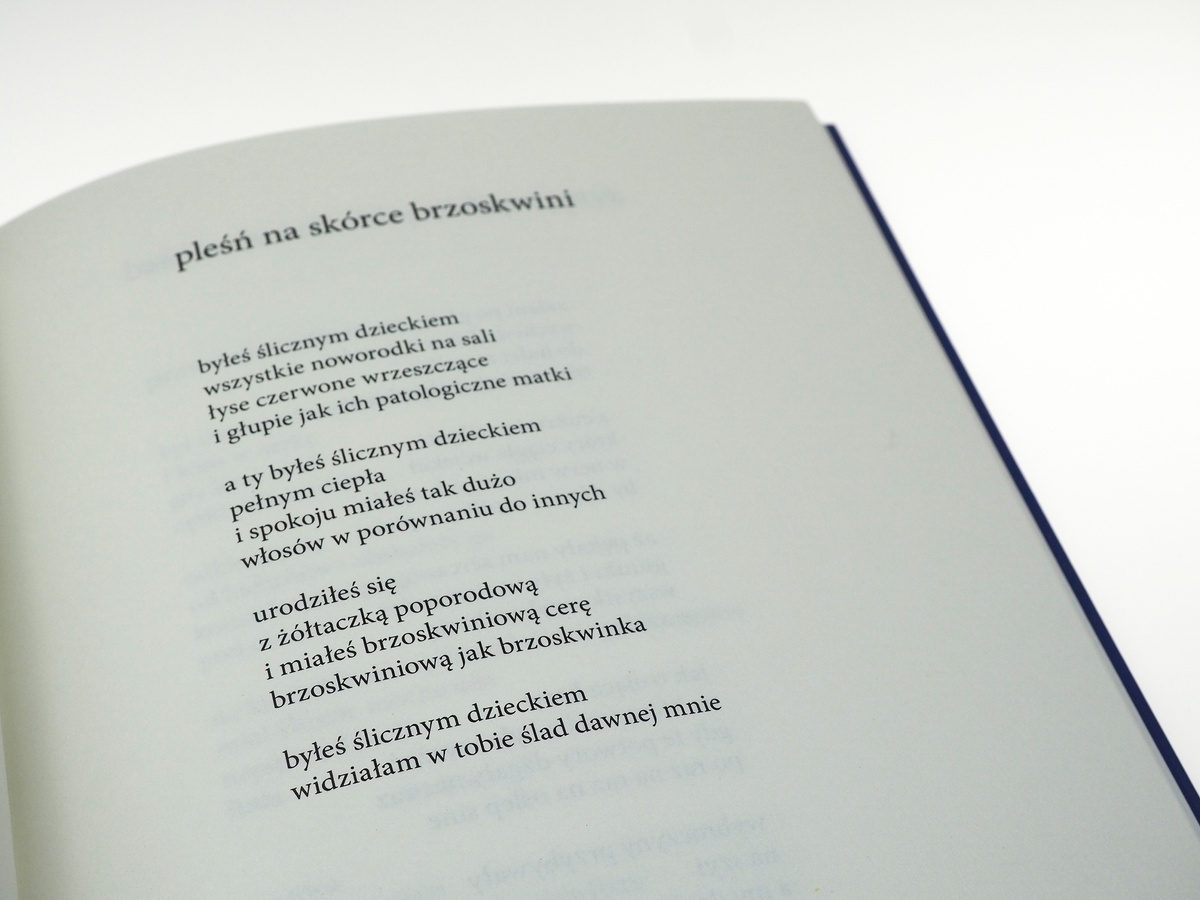 pleśń na skórce brzoskwini
byłeś ślicznym dzieckiem
wszystkie noworodki na sali
łyse czerwone wrzeszczące
i głupie jak ich patologiczne matki
a ty byłeś ślicznym dzieckiem
pełnym ciepła
i spokoju miałeś tak dużo
włosów w porównaniu do innych
urodziłeś się
z żółtaczką poporodową
i miałeś brzoskwiniową cerę
brzoskwiniową jak brzoskwinka
byłeś ślicznym dzieckiem
widziałam w tobie ślad dawnej mnie